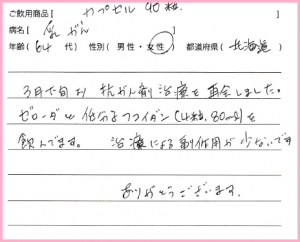 ご飲用商品［カプセル 90粒］
病名［乳がん］
年齢（64代）性別（男性・女性）都道府県（北海道）
3月下旬から抗がん剤治療を再会しました。
ゼローダと低分子フコイダン（4粒、80ml）を
飲んでます。 治療による副作用が少ないです
ありがとうございます。